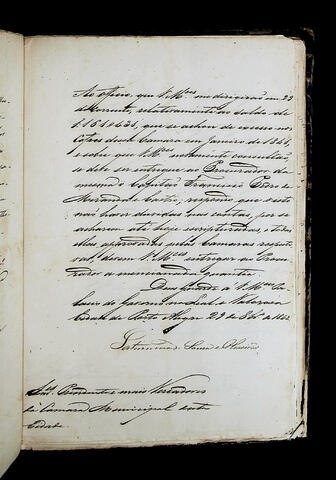 Ao officio, que V. M.ces me dirigirão em 22
do corrente, relativamente ao saldo de
1:164#434, que se achou de excesso nos
Cofres dessa Camara em Janeiro de 1841,
e sobre que V. M.ces novamente consultão,
se deve ser entregue ao Procurador da
mesma o Capitão Francisco Pedro de
Miranda e Castro, respondo que visto
não haver duvidas nas contas, por se
acharem até hoje escripturadas, e todas
ellas approvadas pelas Camaras respecti
vas, devem V. M.ces entregar ao Procu
rador a mencionada quantia.
Deos Guarde a V. M.ces Pa
lacio do Governo na Leal e Valerosa
Cidade de Porto Alegre 27 de 8br.o de 1842
Saturnino de Souza e Oliveira
Snr.es Presidente e mais Vereadores
da Camara Municipal desta
Cidade.